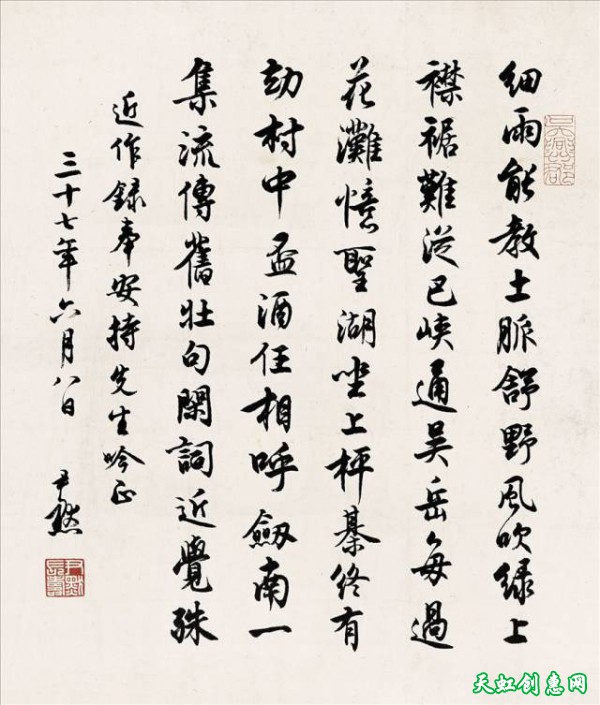 細雨能教土脈舒野風吹綠上
襟裾難從巴峽通吳岳每過
花灘憶聖湖坐上枰棊終有
劫村中盃酒任相呼劒南一
集流傳舊壯句閑詞近覺殊
近作錄奉安持先生吟正
三十七年六月八日 尹默
天虹创惠网